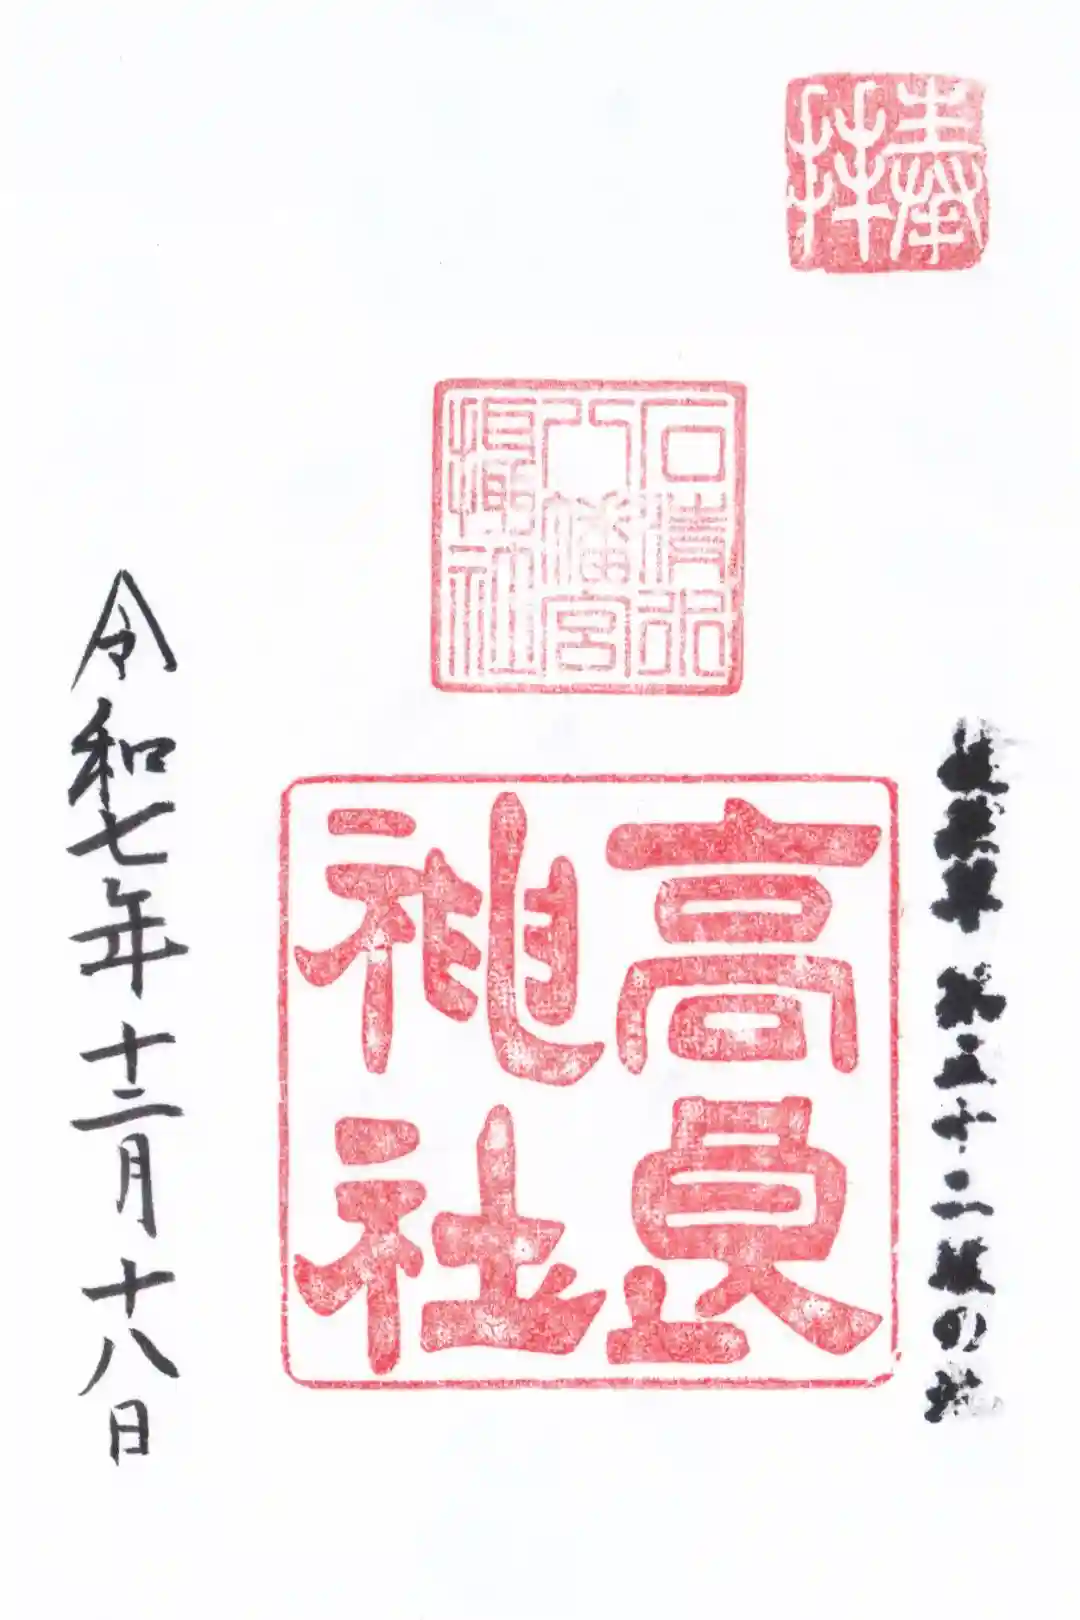 奉
拝
石清水
八幡宮
攝社
徒然草 第五十二段の
高良
神社
令和七年十二月十八日